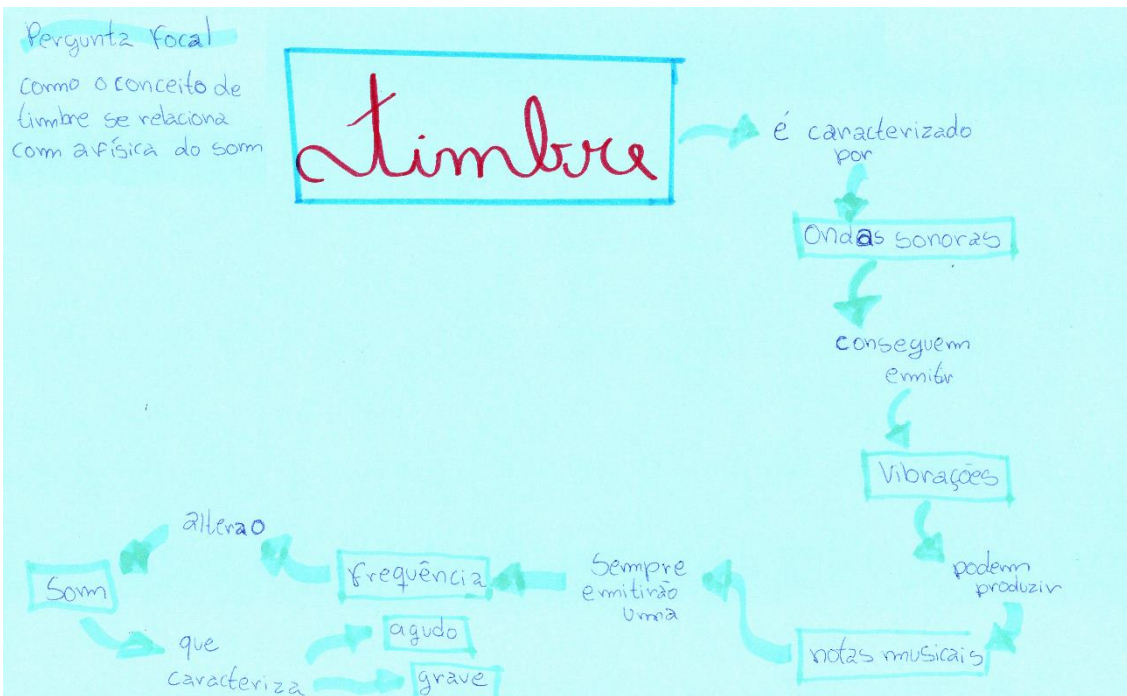 Pergunta Focal
como o conceito de
timbre se relaciona
com a física do som
timbre
é caracterizado
por
Ondas sonoras
conseguem
emitir
Vibrações
podem
produzir
notas musicais
Sempre
emitirão
uma
frequência
altera o
Som
que
caracteriza
agudo
grave